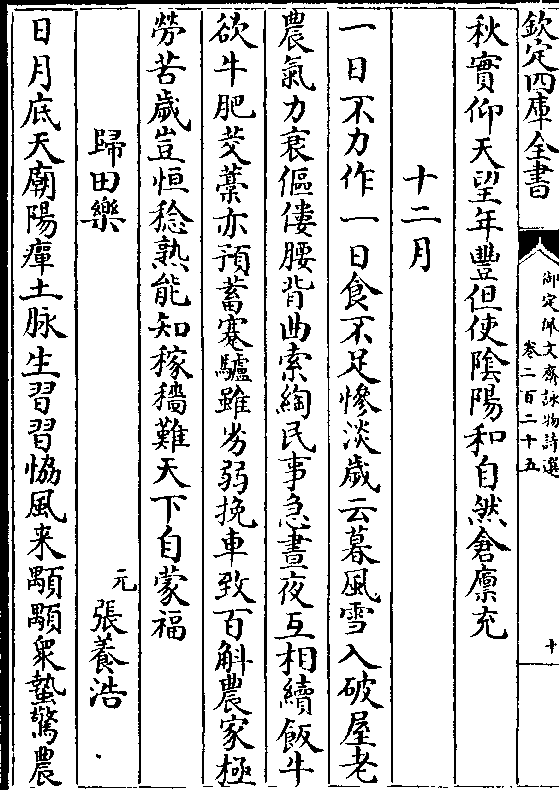 欽定四庫全書
御定佩文齋詠物詩選
卷二百二十五
十
秋實仰天望年豐但使陰陽和自然倉廩充
十二月
一日不力作一日食不足慘淡歲云暮風雪入破屋老
農氣力衰傴僂腰背曲索綯民事急晝夜互相續飯牛
欲牛肥茭藁亦預蓄蹇驢雖劣弱挽車致百斛農家極
勞苦歲豈恒稔熟能知稼穡難天下自蒙福
歸田樂
元
張養浩
日月底天廟陽癉土脉生習習恊風来顒顒衆蟄驚農